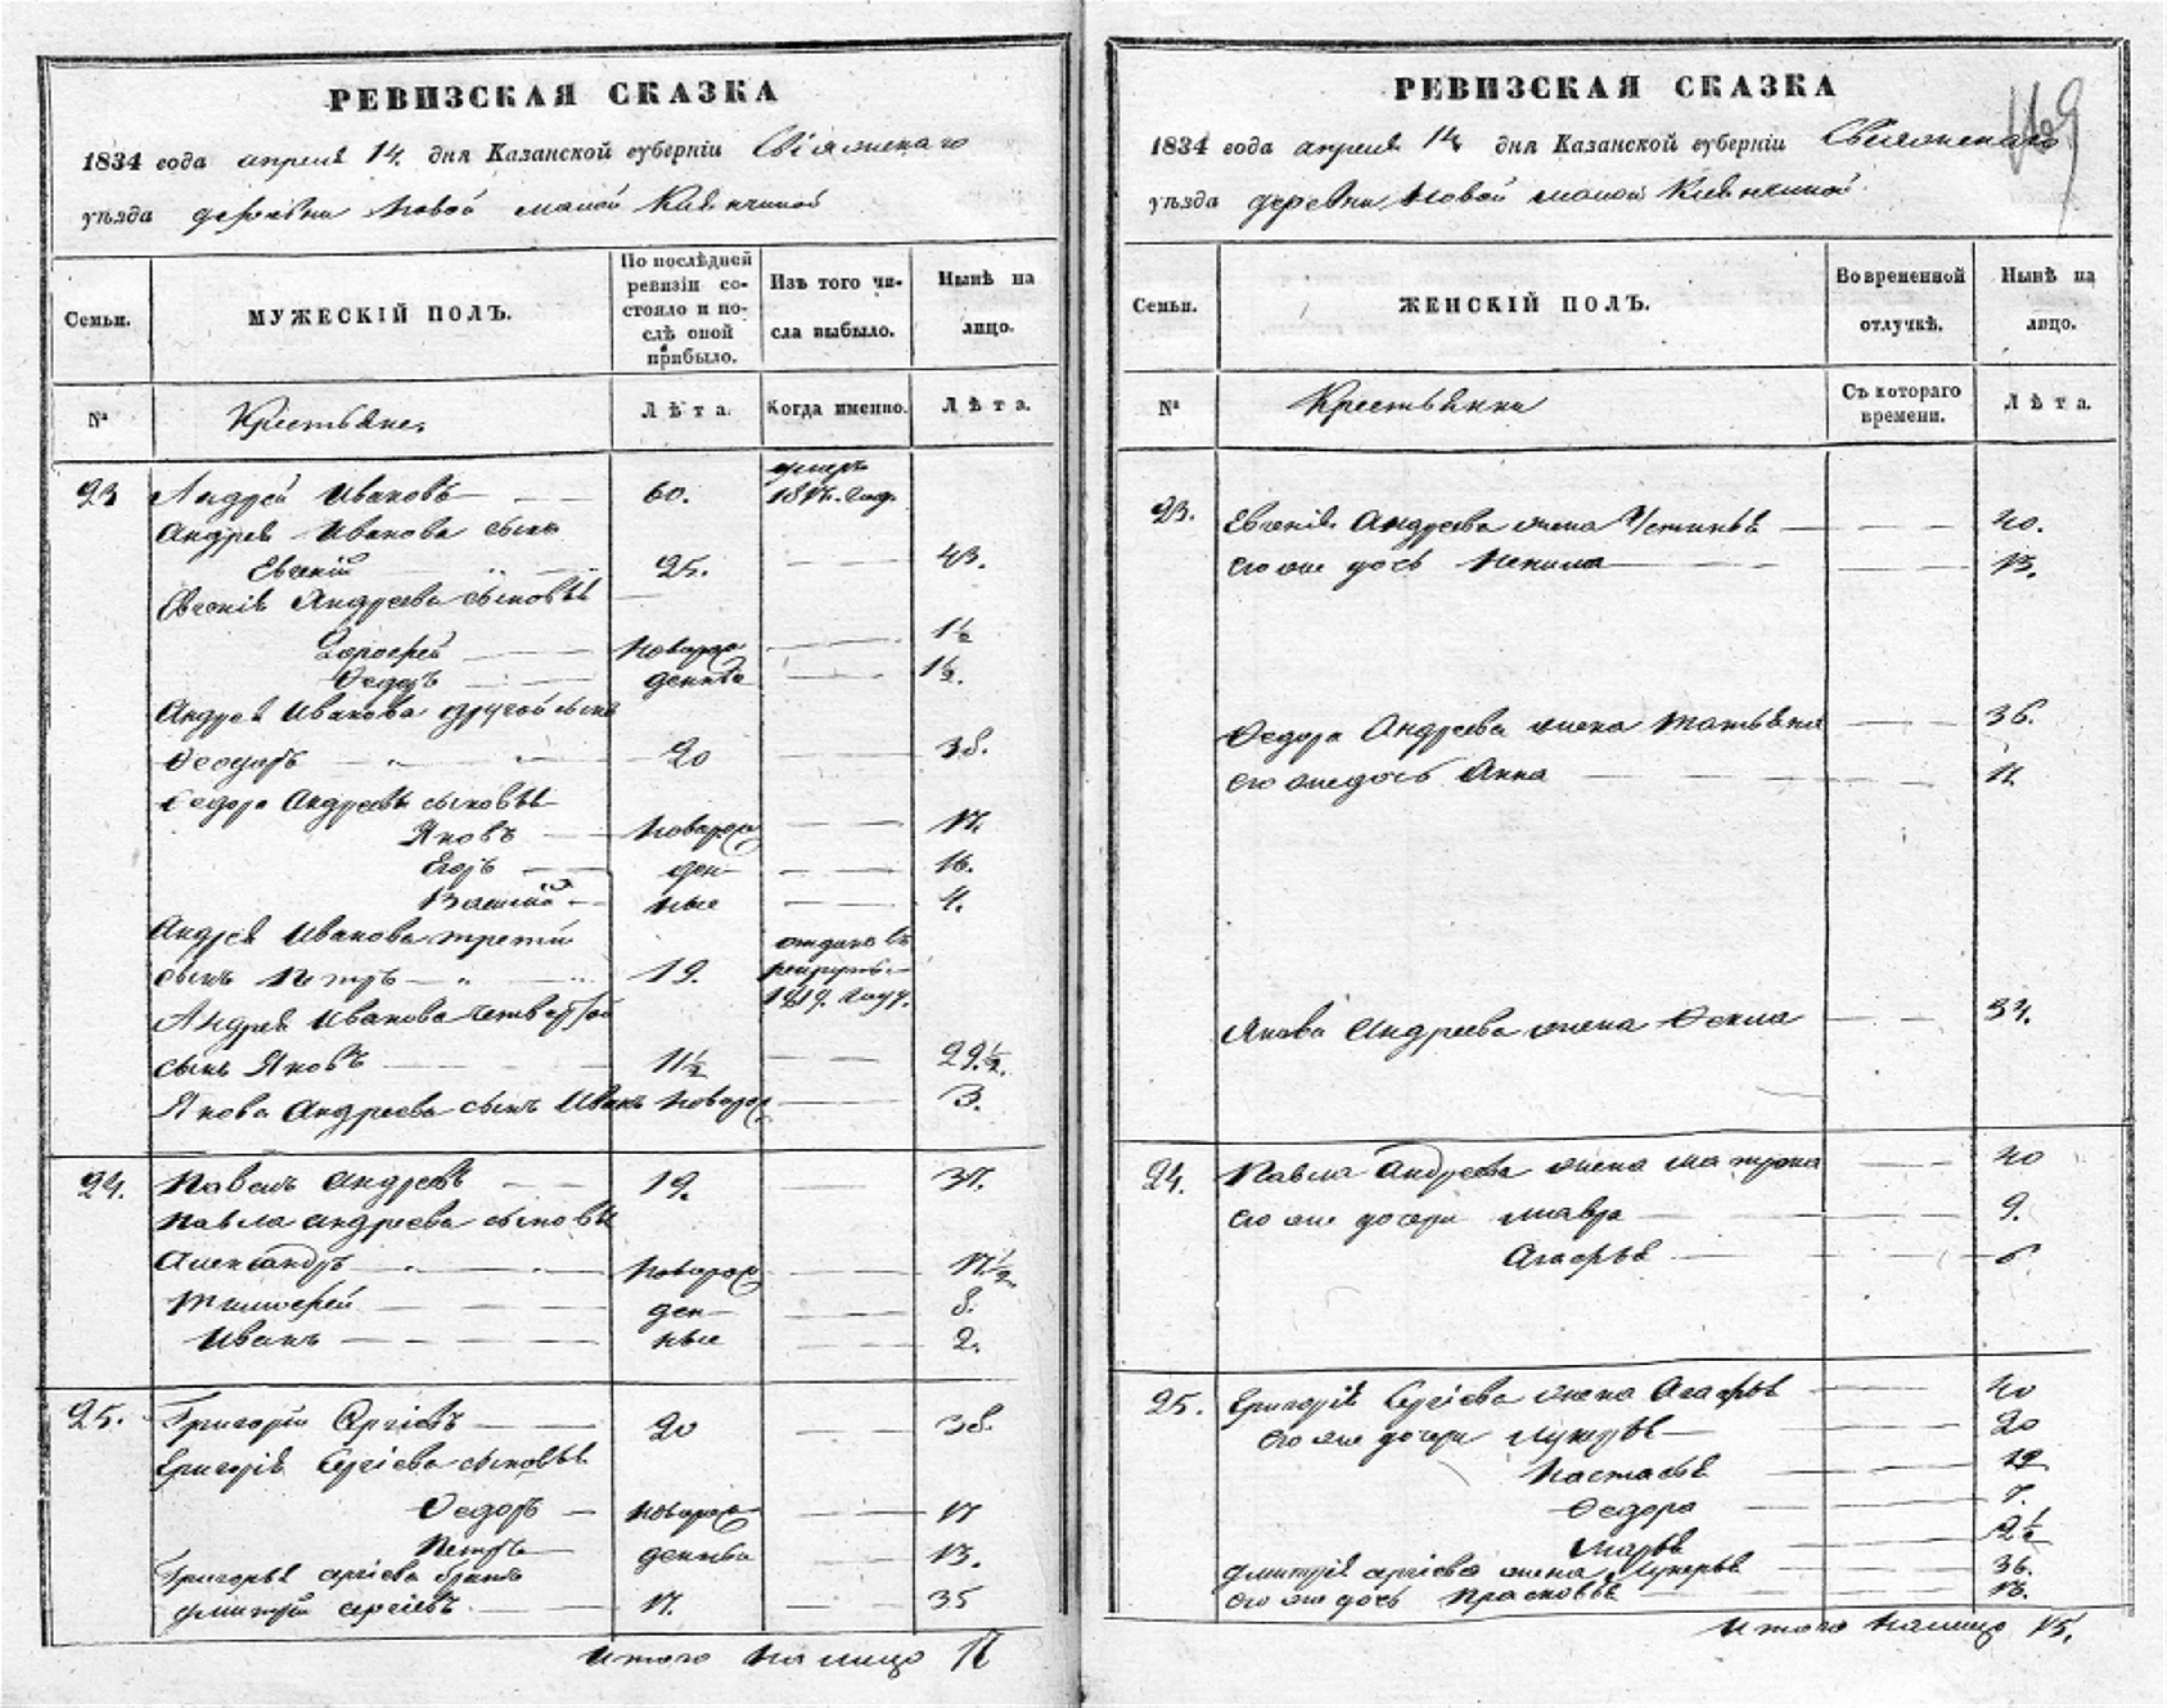 РЕВИЗСКАЯ СКАЗКА
1834 года апреля 14. дня Казанской губерніи Свіяжскаго
уѣзда деревни Новой малой
Семьи.
МУЖЕСКІЙ ПОЛЪ.
По послѣдней ревизіи состояло и послѣ оной прибыло.
Изъ того числа выбыло.
Нынѣ на лицо.
№
Крестьяне,
Лѣта.
Когда именно.
Лѣта.
23 Андрей Ивановъ 60. умеръ
Андрея Иванова сынъ
Евгеній 25. 43.
Евгенія Андреева сыновья
Дорофей новорож 1½
Федоръ денныя 1½.
Андрея Иванова другой сынъ
Федоръ 20 38.
Федора Андреева сыновья
Яковъ новорож 17.
Егоръ ден 16.
Василій ные 4.
Андрея Иванова третій отданъ въ
сынъ Петръ 19. рекруты
1819. году.
Андрея Иванова четвертой
сынъ Яковъ 11½ 29.½.
Якова Андреева сынъ Иванъ новорож 3.
24. Павелъ Андреевъ 19. 37.
Павла Андреева сыновья
Александръ новорож 17.½
Тимофей ден 8.
Иванъ ные 2.
25. Григорій Сергіевъ 20 38.
Григорія Сергіева сыновья
Федоръ новорож 17
Петръ денныя 13.
Григорья Сергіева братъ
Дмитрій Сергіевъ 17. 35
Итого на лицо 17
РЕВИЗСКАЯ СКАЗКА
1834 года апреля 14 дня Казанской губерніи Свіяжскаго
уѣзда деревни Новой малой
Семьи.
ЖЕНСКІЙ ПОЛЪ.
Во временной отлучкѣ.
Нынѣ на лицо.
№
Крестьянки
Съ котораго времени.
Лѣта.
23. Евгенія Андреева жена Устинья 40.
его же дочь 13.
Федора Андреева жена Татьяна 36.
его же дочь Анна 11.
Якова Андреева жена Фекла 34.
24. Павла Андреева жена Матрона 40
его же дочери Мавра 9.
Агафья 6
25. Григорія Сергіева жена Агафья 40
его же дочери Лукерья 20
Настасья 12
Федора 7.
Марья 2½
Дмитрія Сергіева жена Лукерья 36.
его же дочь Прасковья 13.
Итого на лицо 15.